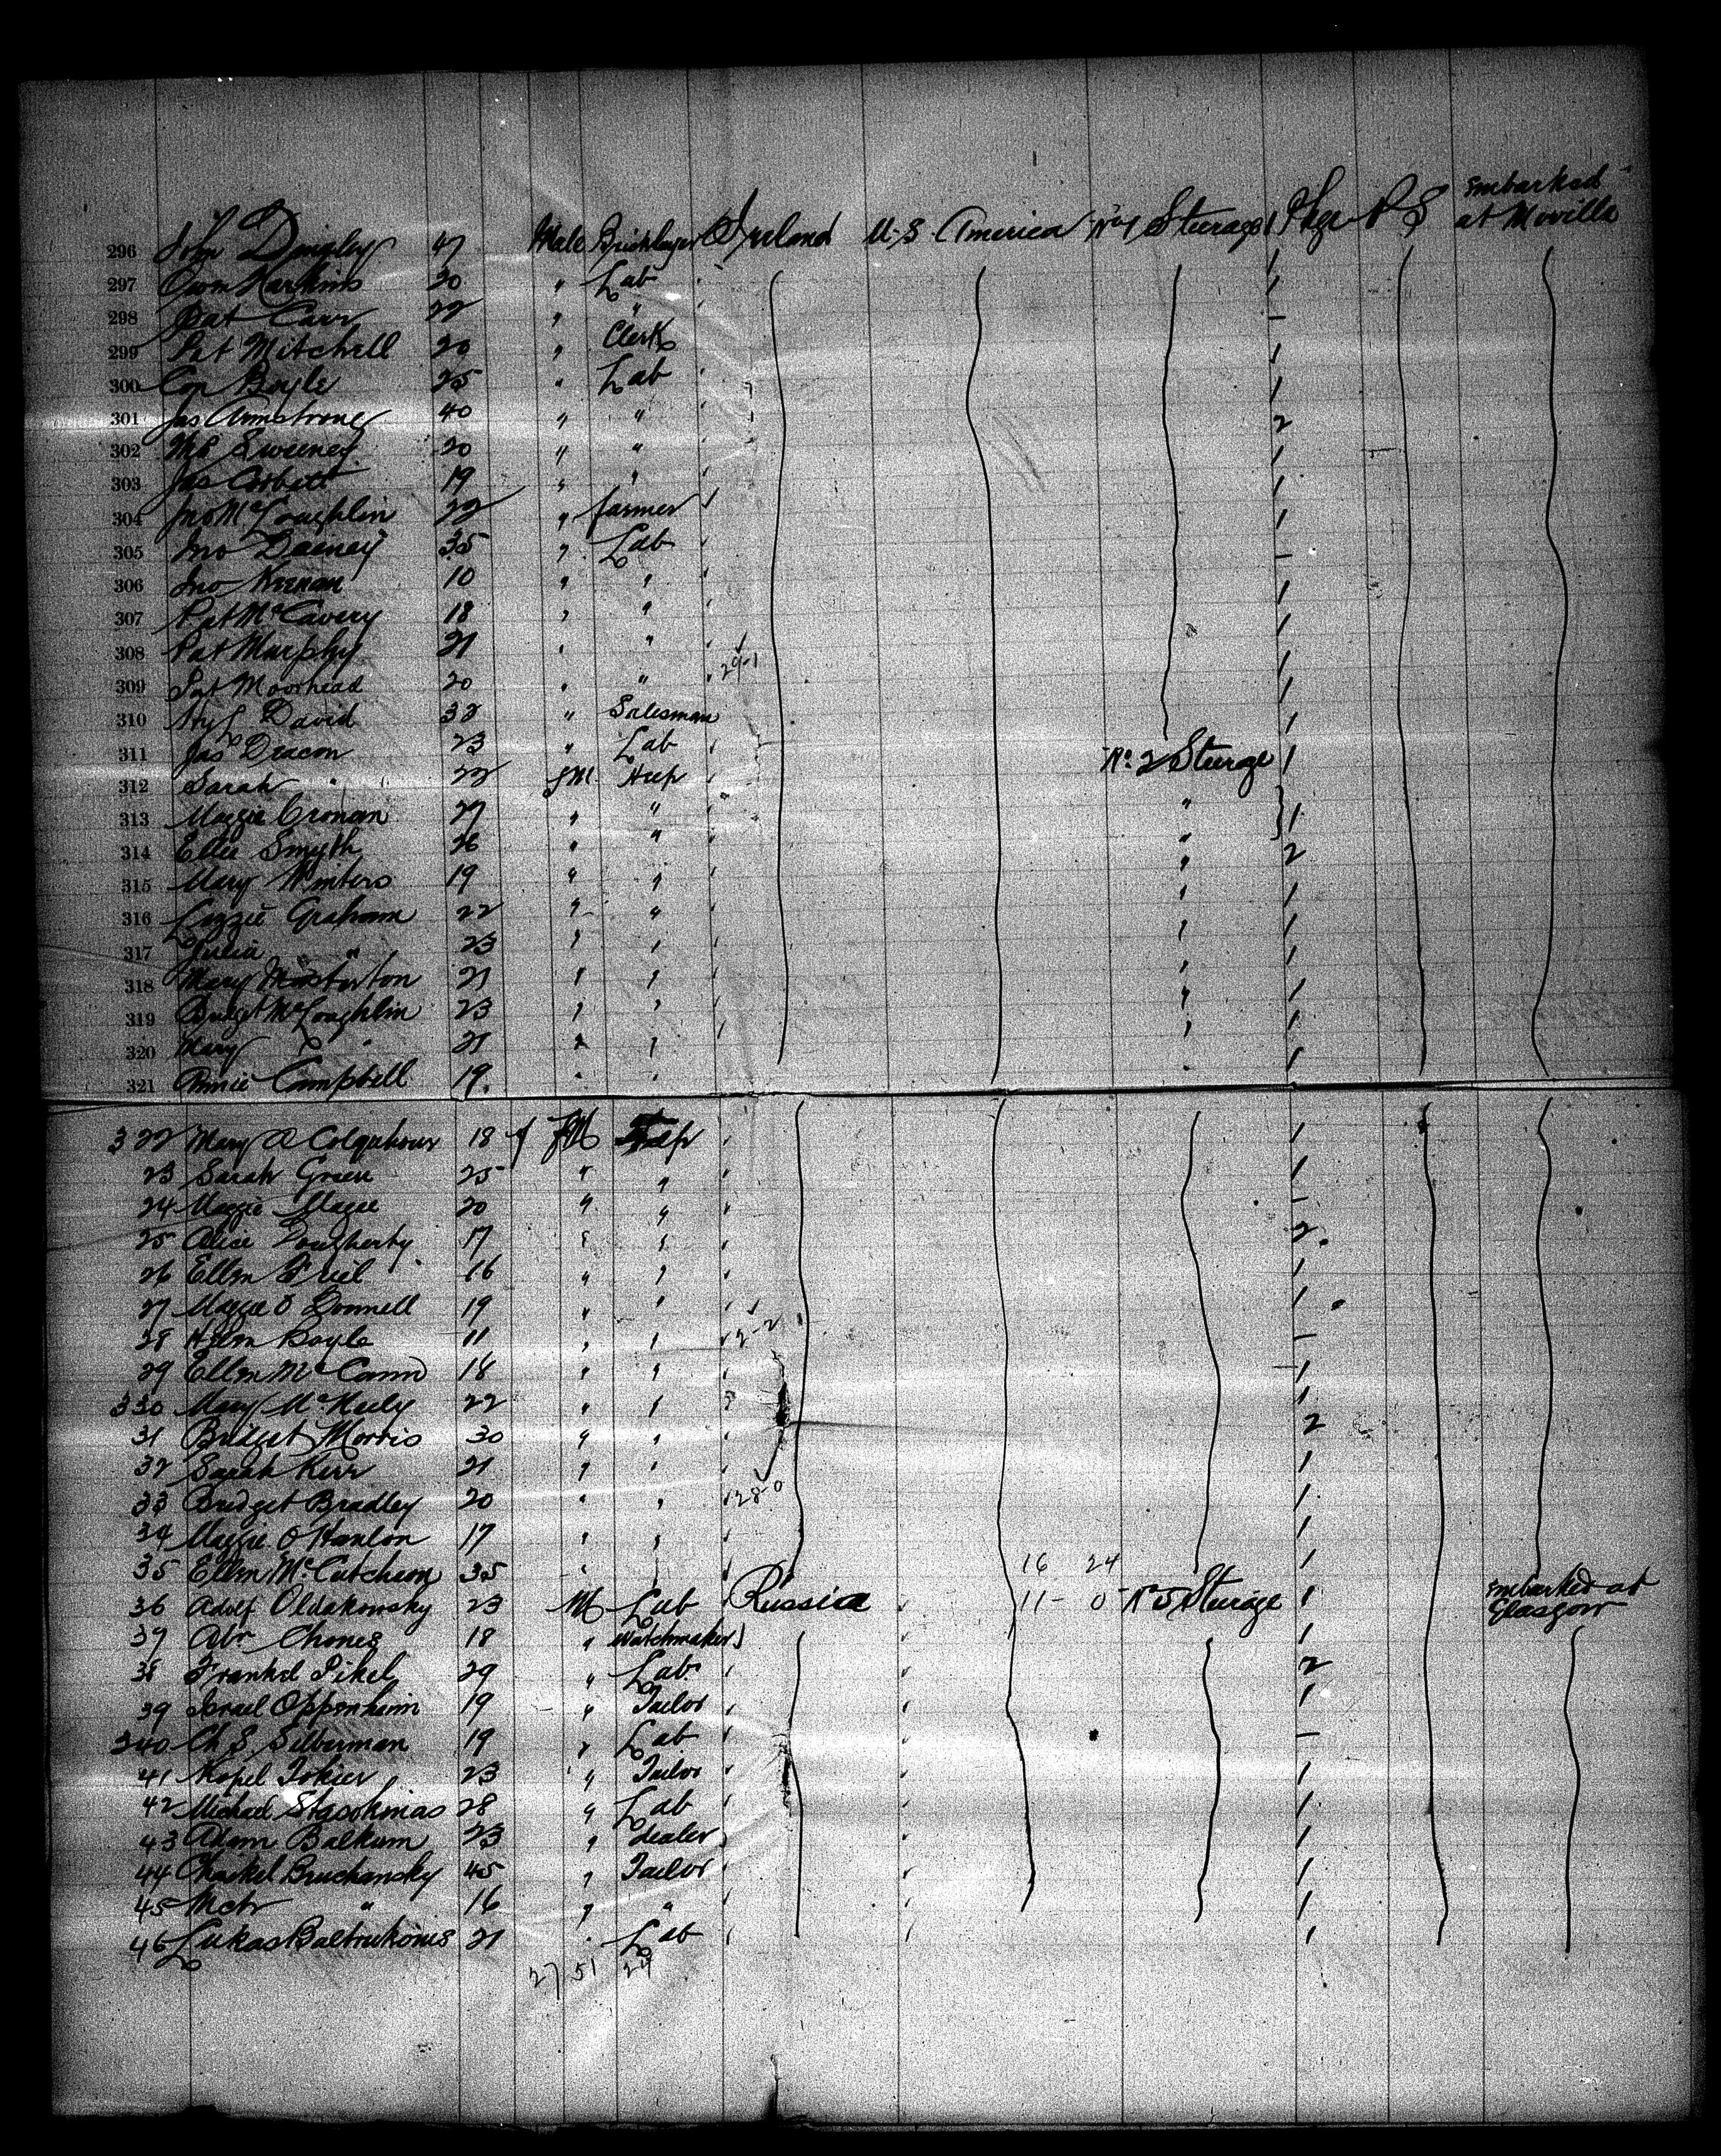 296 John Dingley 47 Male Bricklayer Ireland U.S. America No 1 Steerage 1 Pkge P S Embarked at Moville
297 Owen Harkins 20 " Lab 1
298 Pat Carr 22 " " 1
299 Pat Mitchell 20 " Clerk -
300 Con Boyle 25 " Lab 1
301 Jas Armstrong 40 " " 1
302 Ml Sweeney 20 " " 2
303 Jas Corbett 19 " " 1
304 Jno McLoughlin 22 " farmer 1
305 Jno Dainey 35 " Lab 1
306 Jno Keenan 10 " " -
307 Pat McCavery 18 " " 1
308 Pat Murphy 21 " " 1
29-1
309 Pat Moorhead 20 " " 1
310 Hy David 32 " Salesman 1
311 Jas Deacon 23 " Lab 1
312 Sarah " 22 FM Hkp No 2 Steerage 1
313 Maggie Cronan 27 " " "
314 Ellie Smyth 26 " " " 1
315 Mary Winters 19 " " " 2
316 Lizzie Graham 22 " " " 1
317 Julia " 23 " " " 1
318 Mary Masterton 21 " " " 1
319 Bridget McLoughlin 23 " " " 1
320 Mary " 21 " " " 1
321 Annie Campbell 19 " " " 1
322 Mary A Colquhoun 18 FM Hkp 1
23 Sarah Green 25 " " 1
24 Maggie Magee 20 " " -
25 Alice Dougherty 17 " " 2
26 Ellen Friel 16 " " 1
27 Maggie O Donnell 19 " " 1
28 Helen Boyle 11 " " 2-2 -
29 Ellen McCann 18 " " 1
330 Mary McNeely 22 " " 1
31 Bridget Morris 30 " " 2
32 Sarah Kerr 21 " " 1
33 Bridget Bradley 20 " " 28-0 1
34 Maggie O Hanlon 17 " " 1
35 Ellen McCutcheon 35 " " 16 24 1
36 Adolf Oldakowsky 23 M Lab Russia 11-0 No 5 Steerage 1 Embarked at Glasgow
37 Abr Chones 18 " Watchmaker 1
38 Frankel Pikel 29 " Lab 2
39 Israel Oppenheim 19 " Tailor 1
340 Ch S Silberman 19 " Lab -
41 Kopel Tokier 23 " Tailor 1
42 Michael 28 " Lab 1
43 Adam Balkum 23 " dealer 1
44 Chaskel Bruchansky 45 " Tailor 1
45 " 16 " " 1
46 Lukas Baltrukonis 21 " Lab 1
27 51 24